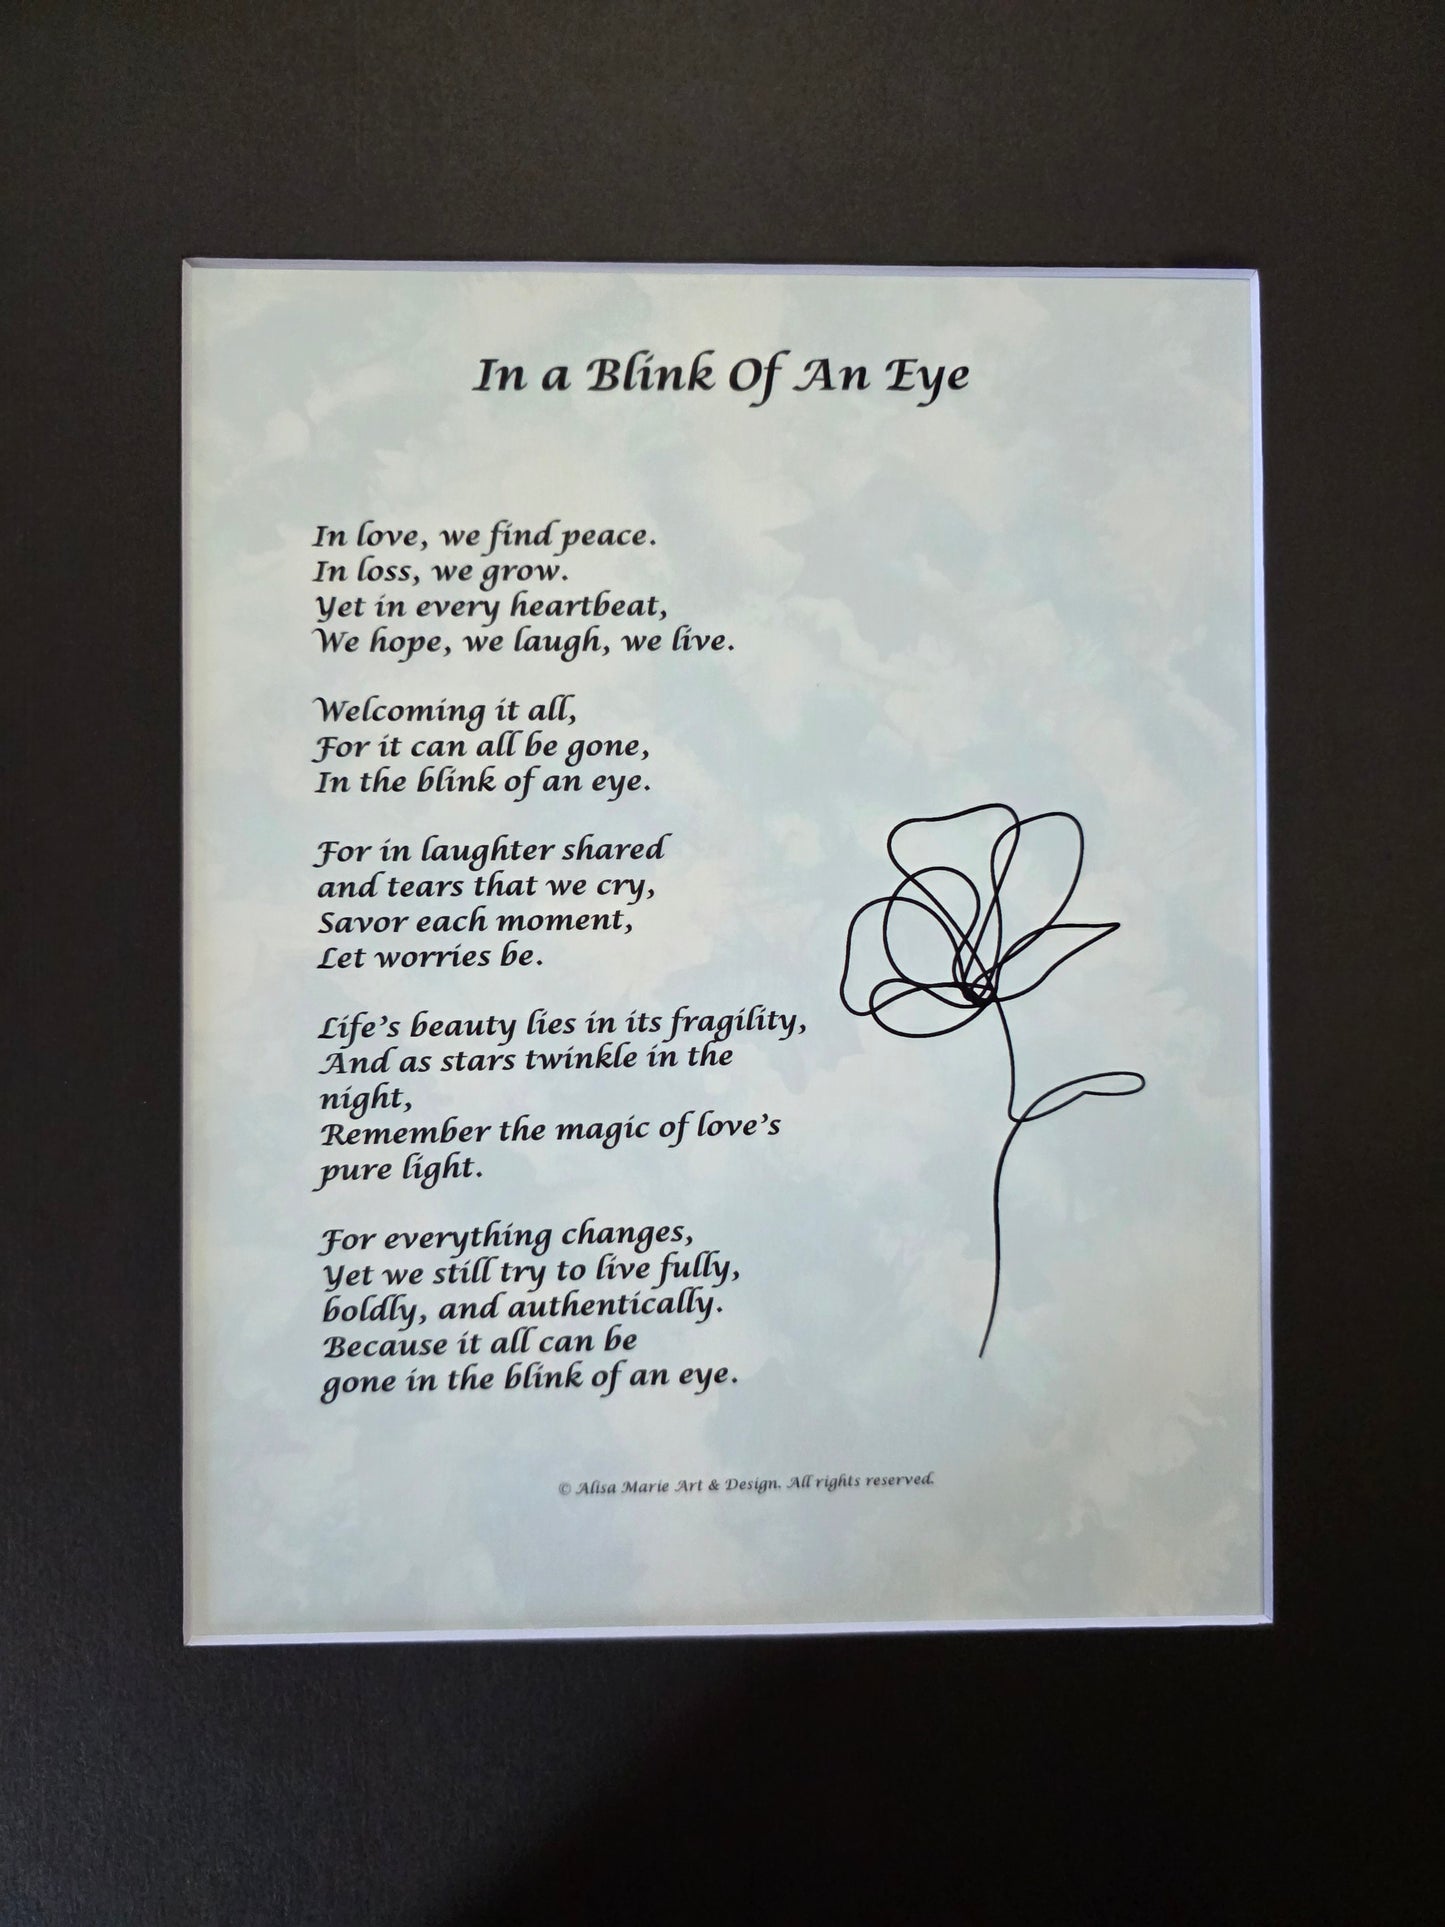 In a Blink Of An Eye
In love, we find peace.
In loss, we grow.
Yet in every heartbeat,
We hope, we laugh, we live.
Welcoming it all,
For it can all be gone,
In the blink of an eye.
For in laughter shared
and tears that we cry,
Savor each moment,
Let worries be.
Life's beauty lies in its fragility,
And as stars twinkle in the
night,
Remember the magic of love's
pure light.
For everything changes,
Yet we still try to live fully,
boldly, and authentically.
Because it all can be
gone in the blink of an eye.
© Alisa Marie Art & Design. All rights reserved.